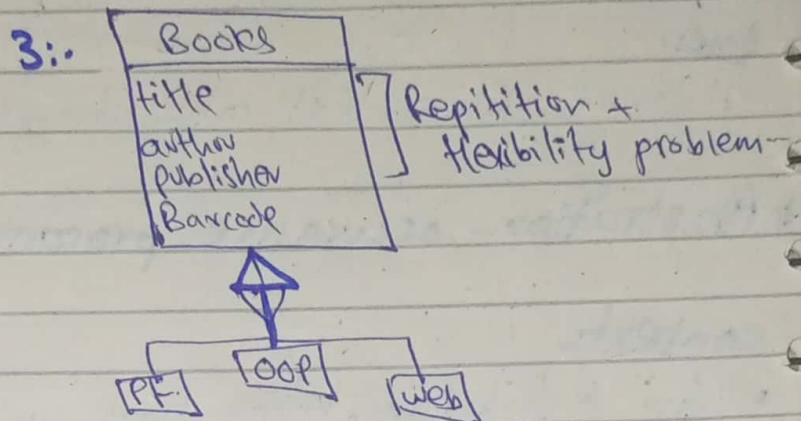 3:-
Books
title
author
publisher
Barcode
Repitition +
flexibility problem-
PF.
OOP
web